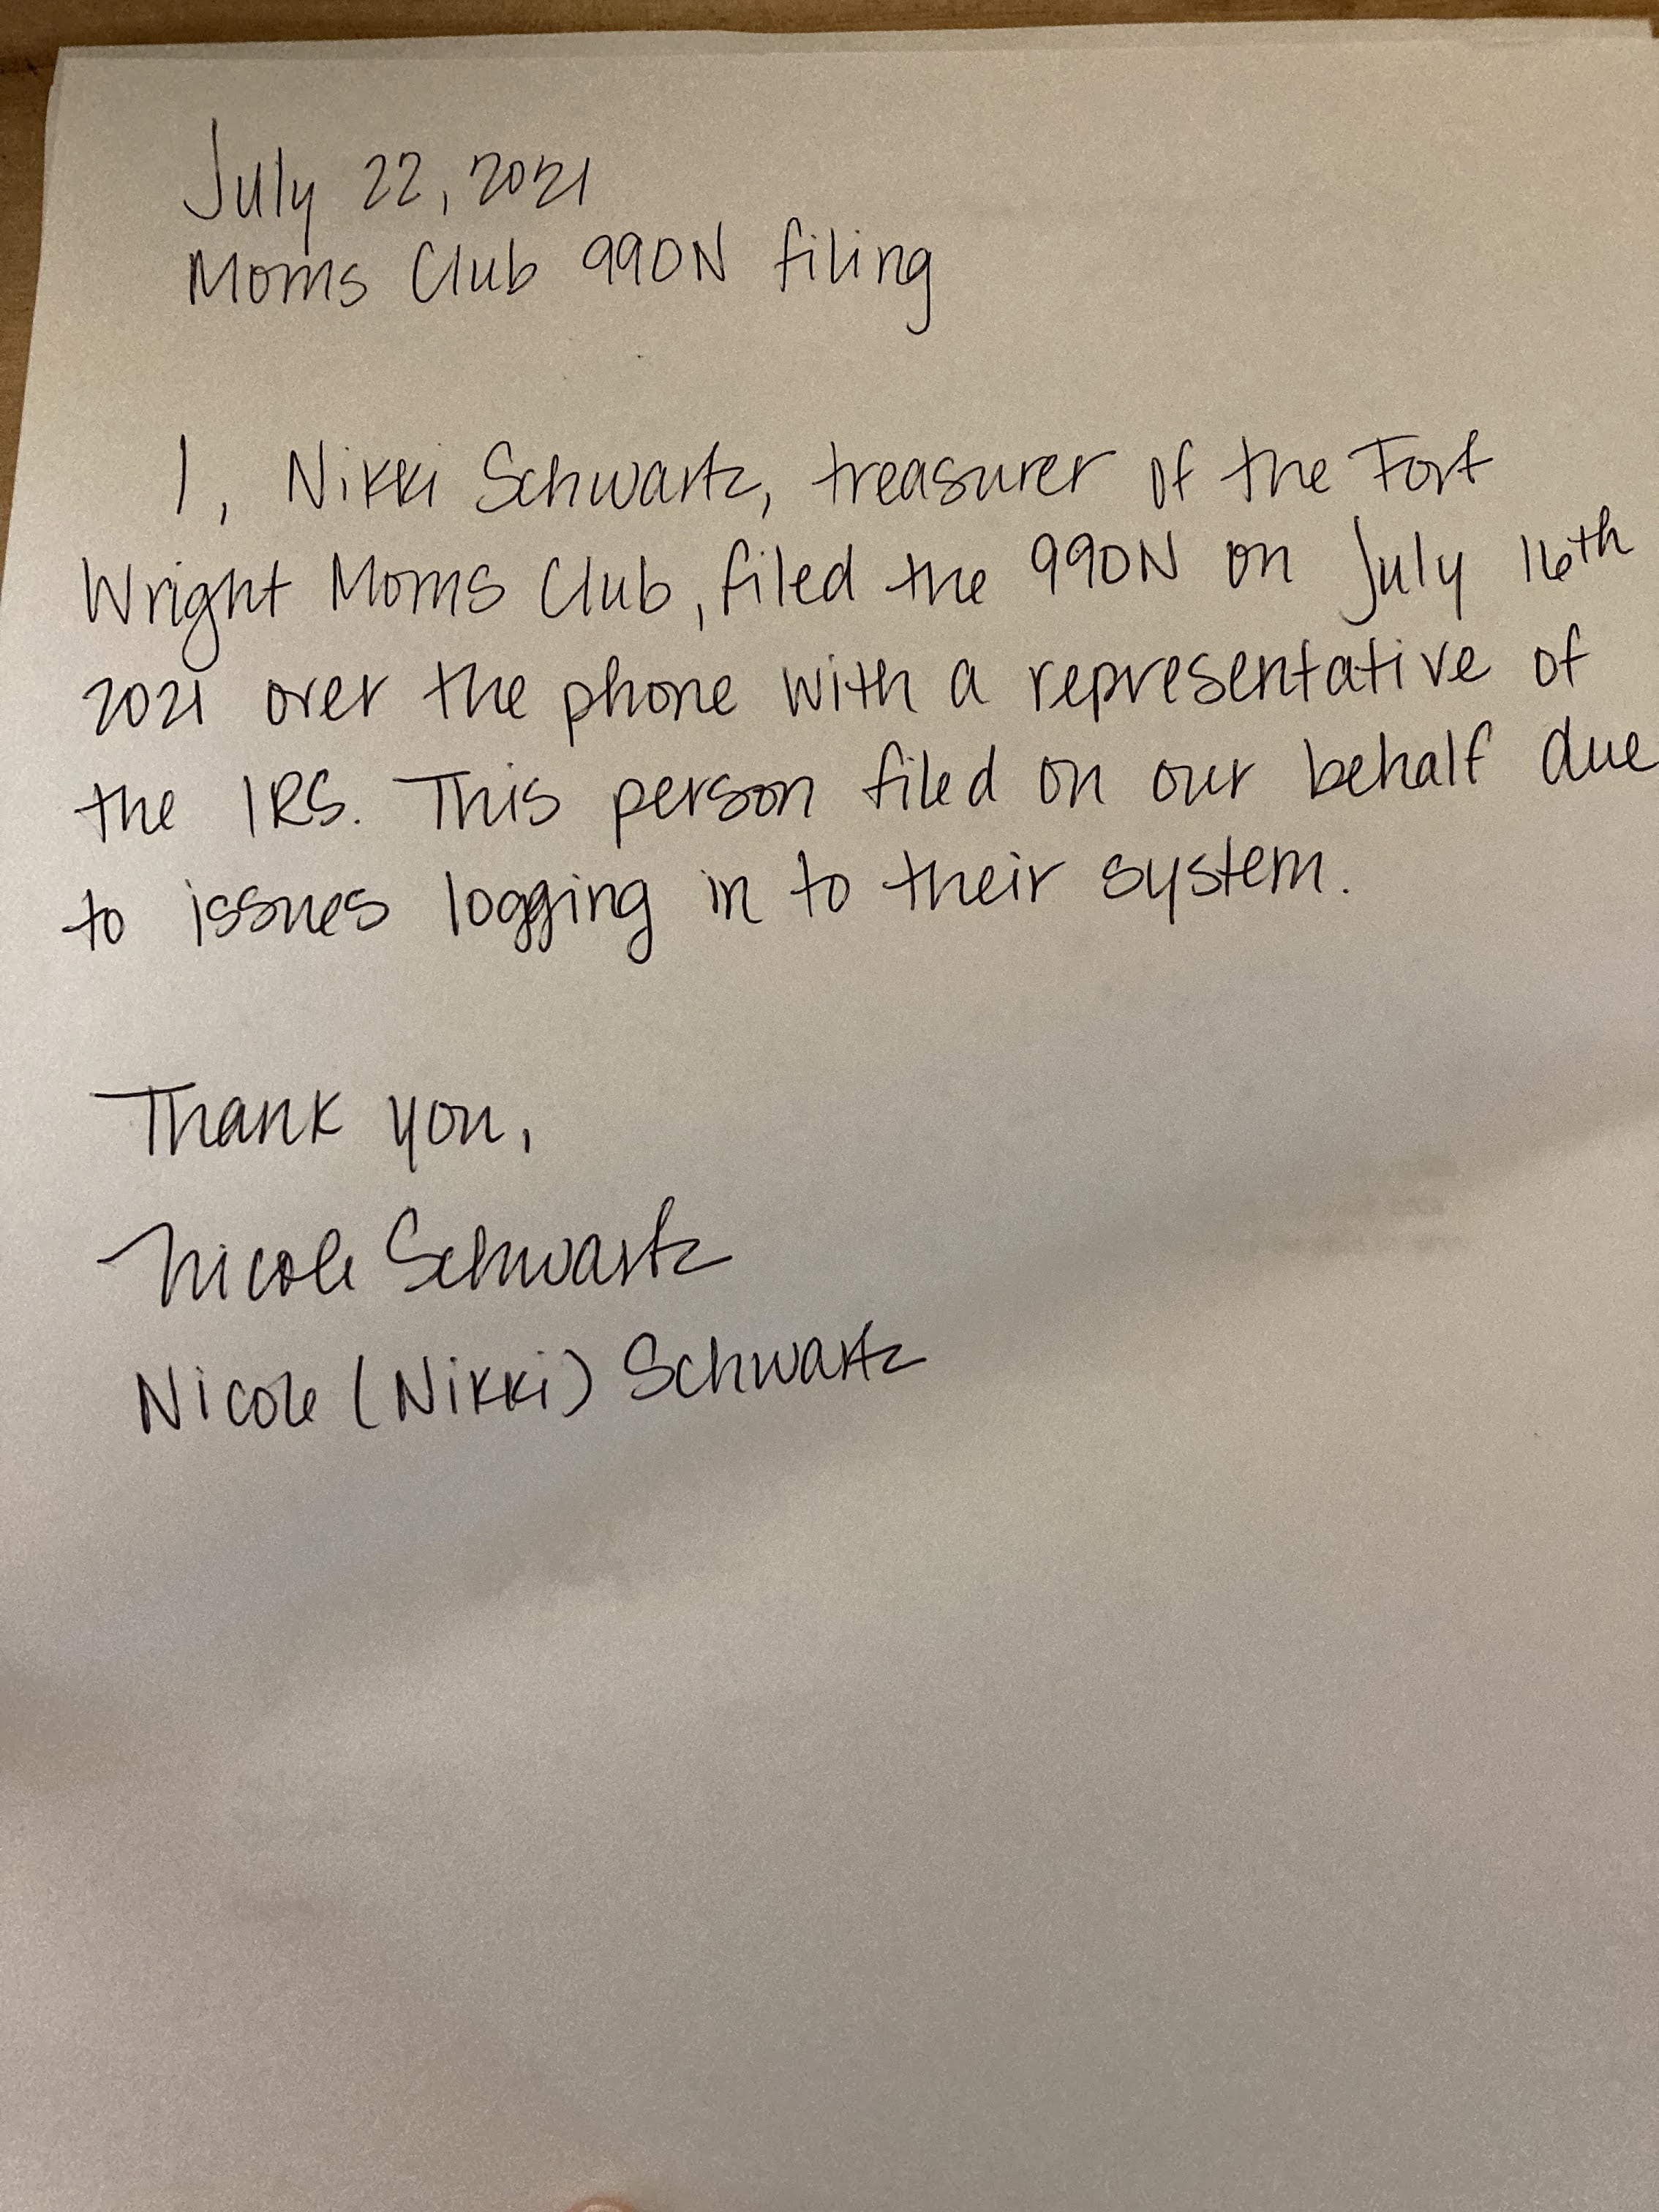 July 22, 2021
Moms Club 990N filing
I, Nikki Schwartz, treasurer of the Fort
Wright Moms Club, filed the 990N on July 16th
2021 over the phone with a representative of
the IRS. This person filed on our behalf due
to issues logging in to their system.
Thank you,
Nicole Schwartz
Nicole (Nikki) Schwartz